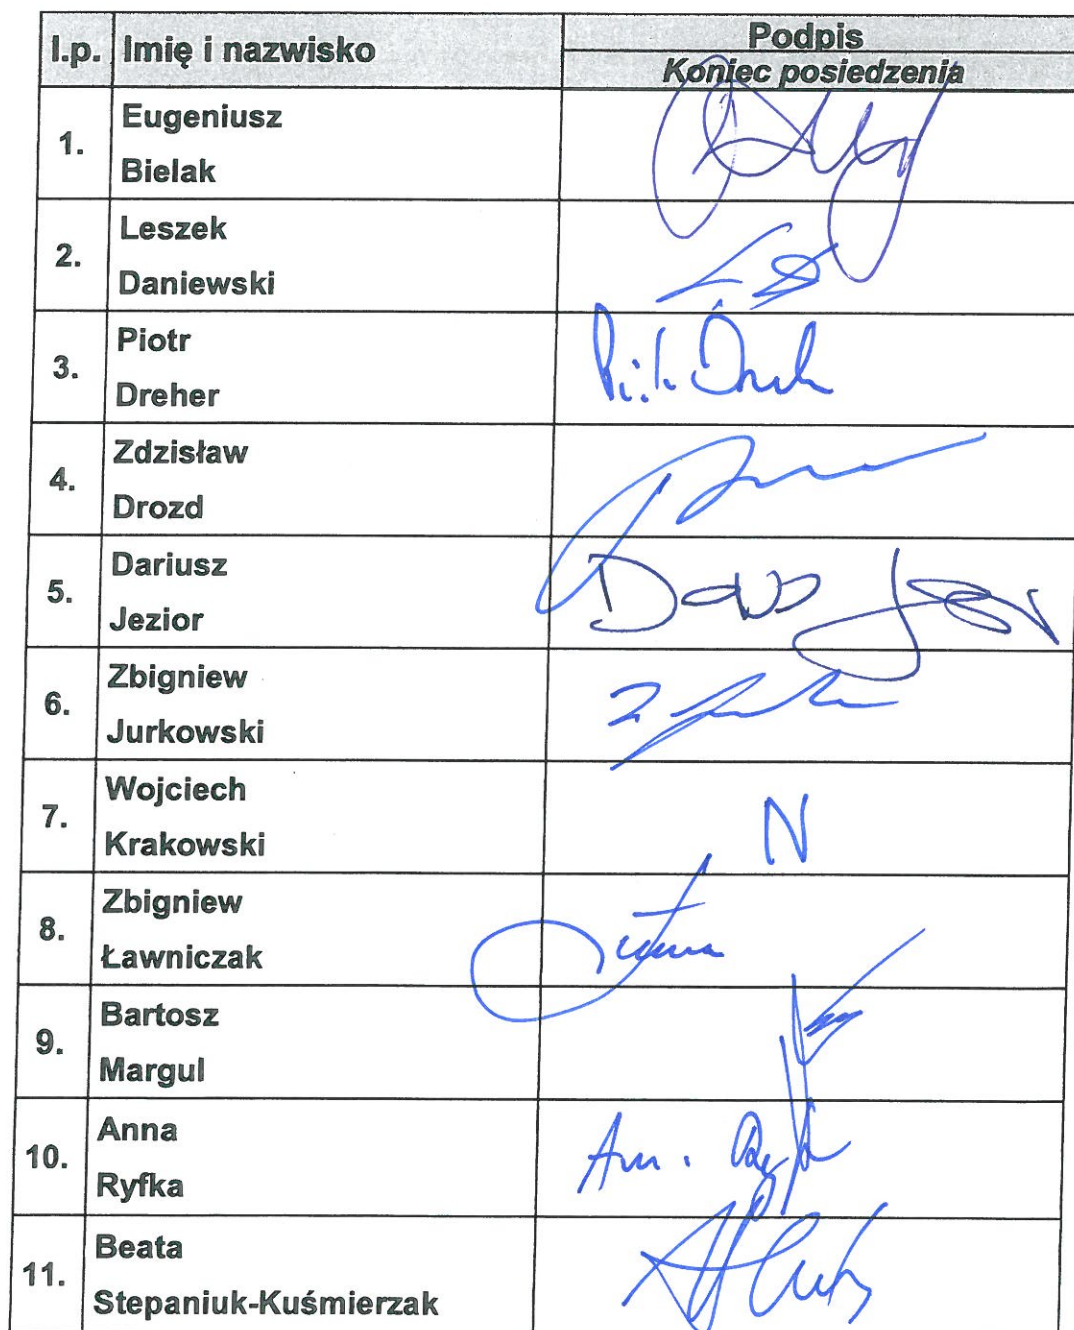 l.p. Imię i nazwisko Podpis
Koniec posiedzenia
1. Eugeniusz
Bielak
2. Leszek
Daniewski
3. Piotr
Dreher
4. Zdzisław
Drozd
5. Dariusz
Jezior
6. Zbigniew
Jurkowski
7. Wojciech
Krakowski
N
8. Zbigniew
Ławniczak
9. Bartosz
Margul
10. Anna
Ryfka
11. Beata
Stepaniuk-Kuśmierzak